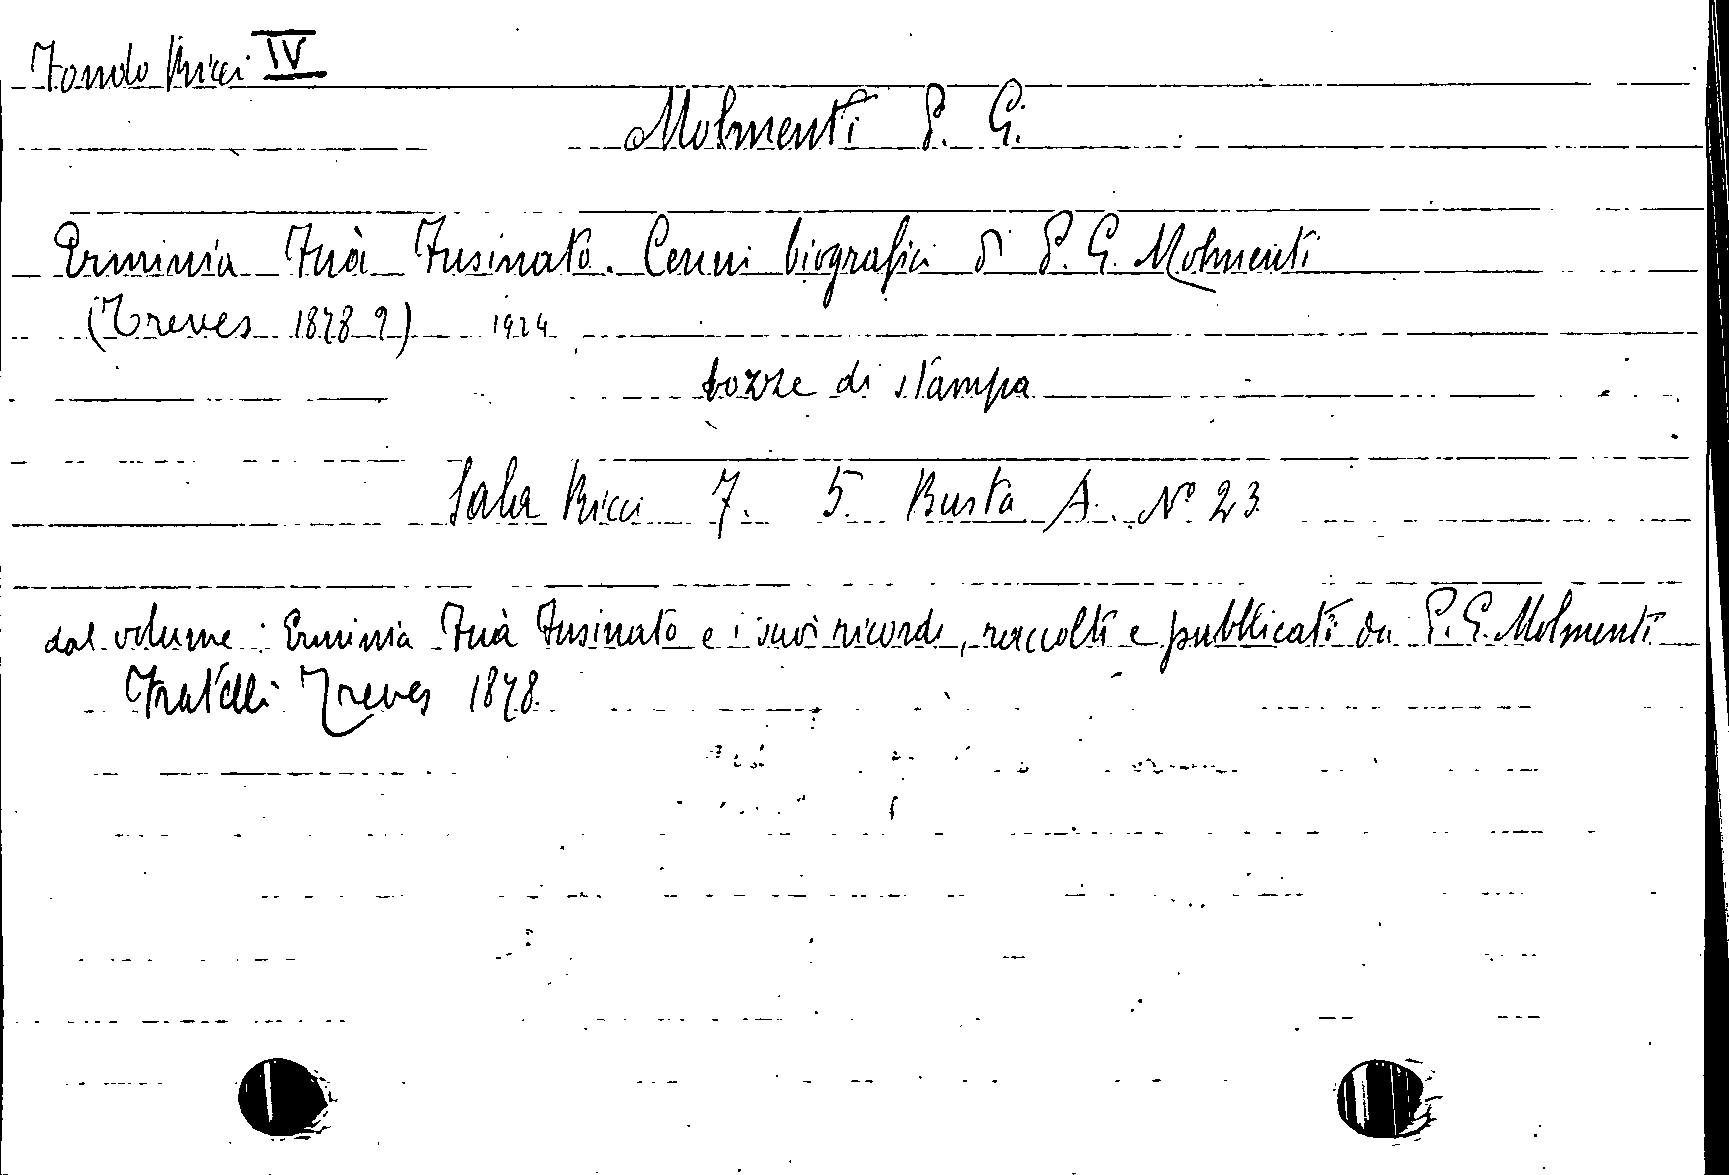 Fondo Ricci IV
Molmenti P. G.
Erminia Fuà Fusinato. Cenni biografici di P. G. Molmenti
(Treves 1878 ?) 1924
bozze di stampa
Sala Ricci 7. 5. Busta A. N° 23
dal volume: Erminia Fuà Fusinato e i suoi ricordi, raccolti e pubblicati da P. G. Molmenti
Fratelli Treves 1878.